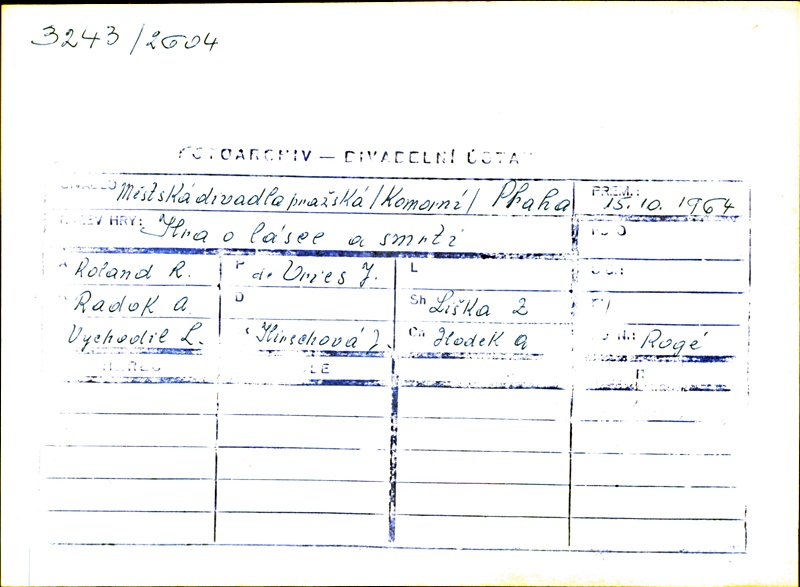 3243/2604
FOTOARCHIV — DIVADELNÍ ÚSTAV
DIVADLO Městská divadla pražská /Komorní/ Praha PREM.: 15. 10. 1964
NÁZEV HRY: Hra o lásce a smrti
A Roland R. P de Vries J. L
Radok A. D Sh Liška Z
Vychodil L. Hirschová J. Ch Hodek A Rogé